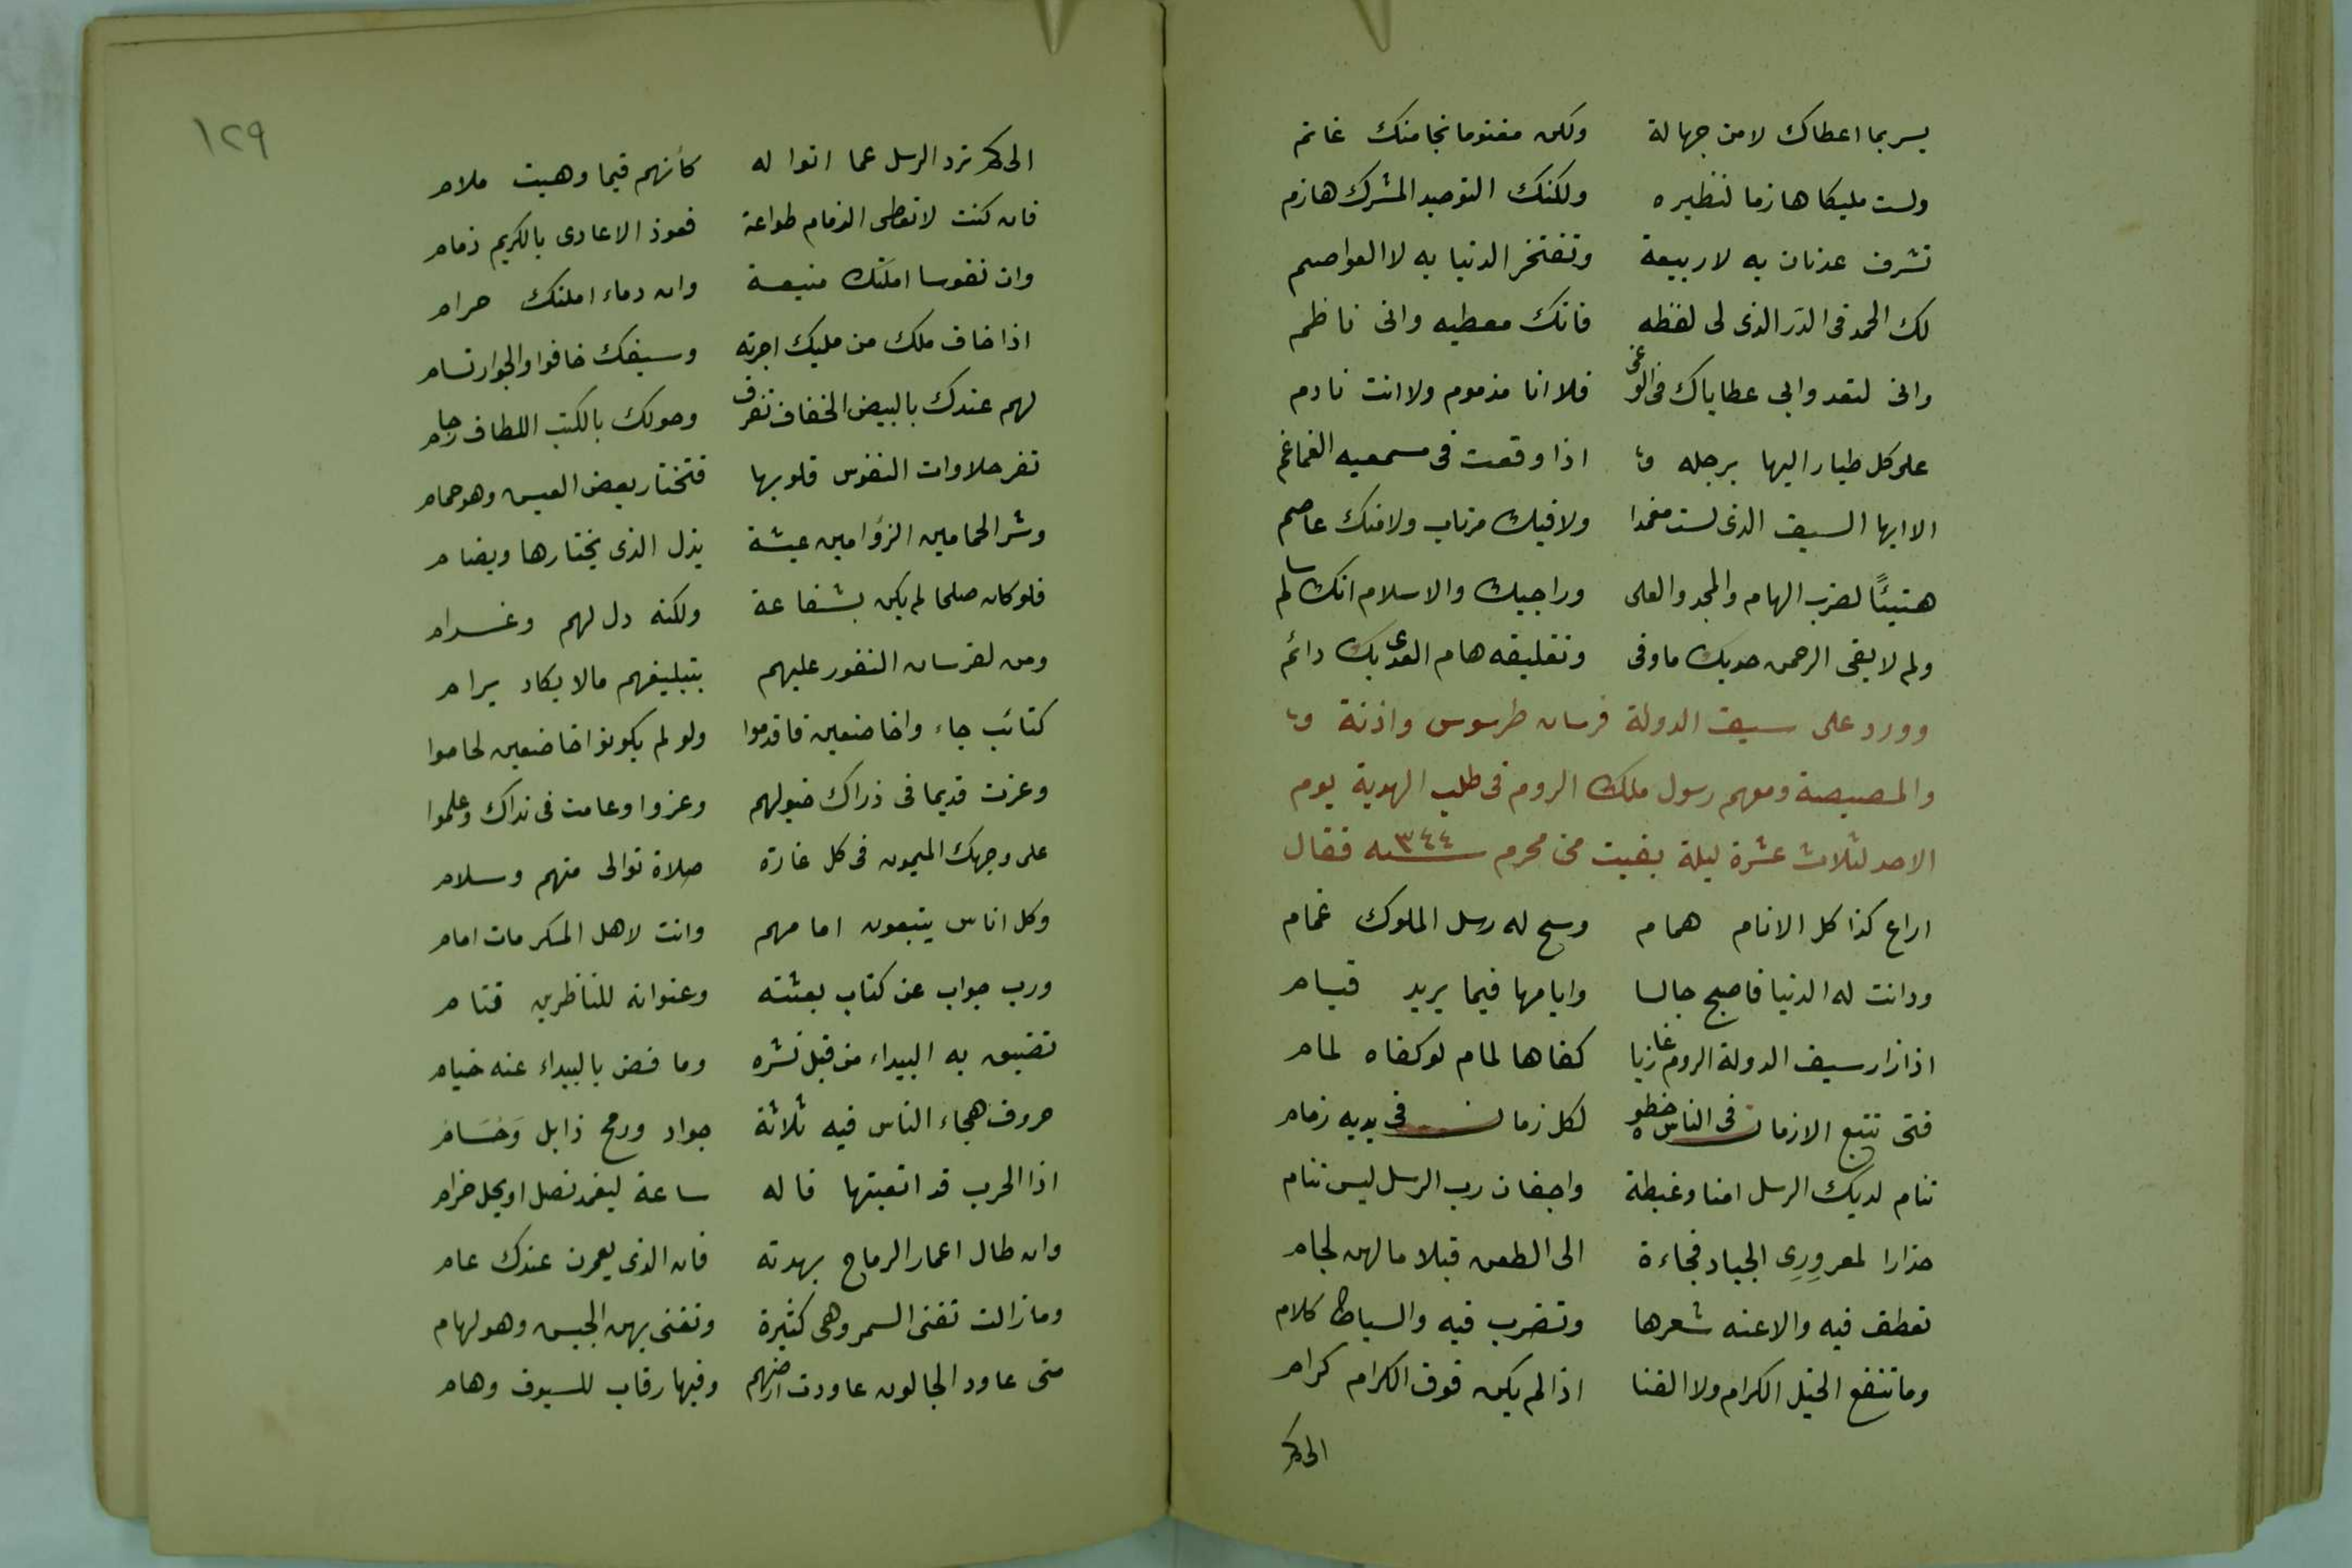 يسر بما اعطاك لا من جهالة ولكن مغنوما نجا منك غانم
ولست مليكا هازما لنظيره ولكنك التوحيد المشرك هازم
تشرف عدنان به لا ربيعة وتفتخر الدنيا به لا العواصم
لك الحمد فى الدر الذى لى لفظه فانك معطيه وانى ناظم
وانى لتعدوا بى عطاياك فى الوغى فلا انا مذموم ولا انت نادم
على كل طيار اليها برجله اذا وقعت فى مسمعيه الغماغم
الا ايها السيف الذى لست مغمدا ولا فيك مرتاب ولا منك عاصم
هنيئًا لضرب الهام والمجد والعلى وراجيك والاسلام انك سالم
ولم لا يقى الرحمن حديك ما وقى وتفليقه هام العدى بك دائم
وورد على سيف الدولة فرسان طرسوس واذنة و
والمصيصة ومعهم رسول ملك الروم فى طلب الهدنة يوم
الاحد لثلاث عشرة ليلة بقيت من محرم سنه ٣٤٤ فقال
اراع كذا كل الانام همام وسح له رسل الملوك غمام
ودانت له الدنيا فاصبح جالسا وايامها فيما يريد قيام
اذا زار سيف الدولة الروم غازيا كفاها لمام لو كفاه لمام
فتى تتبع الازمان فى الناس خطوه لكل زمان فى يديه زمام
تنام لديك الرسل امنا وغبطة واجفان رب الرسل ليس تنام
حذارا لمعرورِى الجياد فجاءة الى الطعن قبلا ما لهن لجام
تعطف فيه والاعنه شعرها وتضرب فيه والسياط كلام
وما تنفع الخيل الكرام ولا القنا اذا لم يكن فوق الكرام كرام
الى كم
١٢٩
الى كم ترد الرسل عما اتوا له كأنهم فيما وهبت ملام
فان كنت لا تعطى الذمام طواعة فعوذ الاعادى بالكريم ذمام
وان نفوسا اممتك منيعة وان دماء املتك حرام
اذا خاف ملك من مليك اجرته وسيفك خافوا والجوار تسام
لهم عندك بالبيض الخفاف تفرق وحولك بالكتب اللطاف زحام
تغر حلاوات النفوس قلوبها فتختار بعض العيس وهو حمام
وشر الحمامين الزؤامين عيشة يذل الذى يختارها ويضام
فلو كان صلحا لم يكن بشفاعة ولكنه ذل لهم وغرام
ومن لفرسان الثغور عليهم بتبليغهم ما لا يكاد يرام
كتائب جاءوا خاضعين فاقدموا ولو لم يكونوا خاضعين لخاموا
وعزت قديما فى ذراك خيولهم وعزوا وعامت فى نداك وعاموا
على وجهك الميمون فى كل غارة صلاة توالى منهم وسلام
وكل اناس يتبعون امامهم وانت لاهل المكرمات امام
ورب جواب عن كتاب بعثته وعنوانه للناظرين قتام
تضيق به البيداء من قبل نشره وما فض بالبيداء عنه ختام
حروف هجاء الناس فيه ثلاثة جواد ورمح ذابل وحسام
اذا الحرب قد اتعبتها فاله ساعة ليغمد نصل او يحل حزام
وان طال اعمار الرماح بهدنة فان الذى يعمرن عندك عام
وما زالت تفنى السمر وهى كثيرة وتفنى بهن الجيش وهو لهام
متى عاود الجالون عاودت ارضهم وفيها رقاب للسيوف وهام